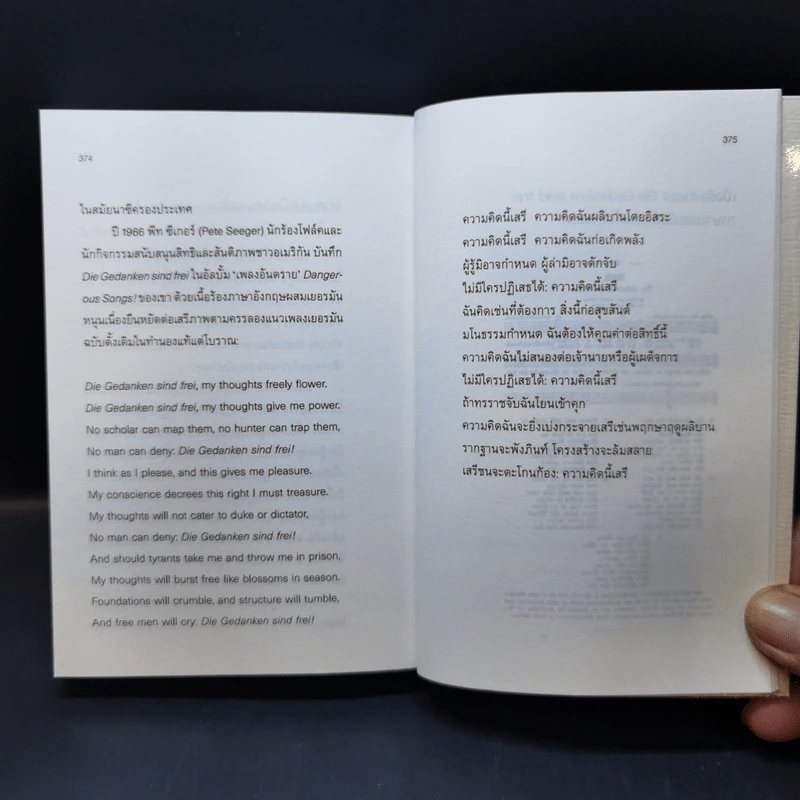 374
ในสมัยนาซีครองประเทศ
ปี 1966 พีท ซีเกอร์ (Pete Seeger) นักร้องโฟล์คและ
นักกิจกรรมสนับสนุนสิทธิและสันติภาพชาวอเมริกัน บันทึก
Die Gedanken sind frei ในอัลบั้ม ‘เพลงอันตราย’ Danger-
ous Songs! ของเขา ด้วยเนื้อร้องภาษาอังกฤษผสมเยอรมัน
หนุนเนื่องยืนหยัดต่อเสรีภาพตามครรลองแนวเพลงเยอรมัน
ฉบับดั้งเดิมในทำนองแท้แต่โบราณ:
Die Gedanken sind frei, my thoughts freely flower.
Die Gedanken sind frei, my thoughts give me power.
No scholar can map them, no hunter can trap them,
No man can deny: Die Gedanken sind frei!
I think as I please, and this gives me pleasure.
My conscience decrees this right I must treasure.
My thoughts will not cater to duke or dictator,
No man can deny: Die Gedanken sind frei!
And should tyrants take me and throw me in prison,
My thoughts will burst free like blossoms in season.
Foundations will crumble, and structure will tumble,
And free men will cry: Die Gedanken sind frei!
375
ความคิดนี้เสรี ความคิดฉันผลิบานโดยอิสระ
ความคิดนี้เสรี ความคิดฉันก่อเกิดพลัง
ผู้รู้มิอาจกำหนด ผู้ล่ามิอาจดักจับ
ไม่มีใครปฏิเสธได้: ความคิดนี้เสรี
ฉันคิดเช่นที่ต้องการ สิ่งนี้ก่อสุขสันต์
มโนธรรมกำหนด ฉันต้องให้คุณค่าต่อสิทธิ์นี้
ความคิดฉันไม่สนองต่อเจ้านายหรือผู้เผด็จการ
ไม่มีใครปฏิเสธได้: ความคิดนี้เสรี
ถ้าทรราชจับฉันโยนเข้าคุก
ความคิดฉันจะยิ่งเบ่งกระจายเสรีเช่นพฤกษาฤดูผลิบาน
รากฐานจะพังภินท์ โครงสร้างจะล้มสลาย
เสรีชนจะตะโกนก้อง: ความคิดนี้เสรี